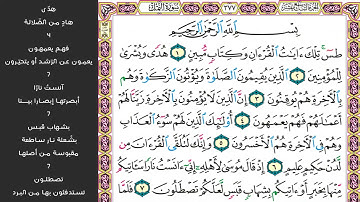 سُورَةُ النَّمْلِ
٣٧٧
بِسْمِ ٱللَّهِ ٱلرَّحْمَٰنِ ٱلرَّحِيمِ
طسٓ تِلْكَ ءَايَٰتُ ٱلْقُرْءَانِ وَكِتَابٍ مُّبِينٍ ١ هُدًى وَبُشْرَىٰ
لِلْمُؤْمِنِينَ ٢ ٱلَّذِينَ يُقِيمُونَ ٱلصَّلَوٰةَ وَيُؤْتُونَ ٱلزَّكَوٰةَ وَهُم
بِٱلْءَاخِرَةِ هُمْ يُوقِنُونَ ٣ إِنَّ ٱلَّذِينَ لَا يُؤْمِنُونَ بِٱلْءَاخِرَةِ زَيَّنَّا لَهُمْ
أَعْمَٰلَهُمْ فَهُمْ يَعْمَهُونَ ٤ أُو۟لَٰٓئِكَ ٱلَّذِينَ لَهُمْ سُوٓءُ ٱلْعَذَابِ
وَهُمْ فِى ٱلْءَاخِرَةِ هُمُ ٱلْأَخْسَرُونَ ٥ وَإِنَّكَ لَتُلَقَّى ٱلْقُرْءَانَ مِن
لَّدُنْ حَكِيمٍ عَلِيمٍ ٦ إِذْ قَالَ مُوسَىٰ لِأَهْلِهِۦٓ إِنِّىٓ ءَانَسْتُ نَارًا سَـَٔاتِيكُم
مِّنْهَا بِخَبَرٍ أَوْ ءَاتِيكُم بِشِهَابٍ قَبَسٍ لَّعَلَّكُمْ تَصْطَلُونَ ٧ فَلَمَّا
هدًى
هادٍ من الضّلالة
٤
فهم يعمهون
يعمون عن الرّشد أو يتحيّرون
7
آنست نارًا
أبصرتها إبصارا بينا
7
بشهاب قبس
بشُعلة نار ساطعة
مقبوسة من أصلها
7
تصطلون
تستدفئون بها من البرد